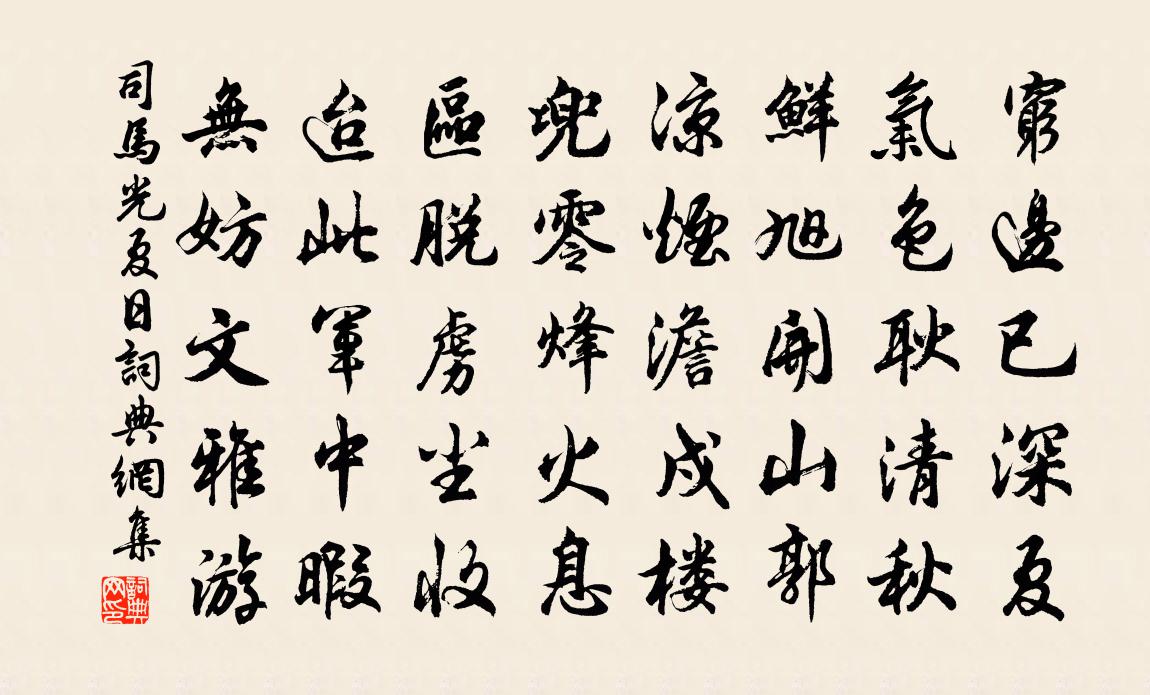 窮邊已深夏
氣色耿清秋
鮮旭開山郭
涼煙澹戍楼
兜零烽火息
區脫虜尘收
迨此軍中暇
無妨文雅游
司馬光夏日詞典網集
詞典网印